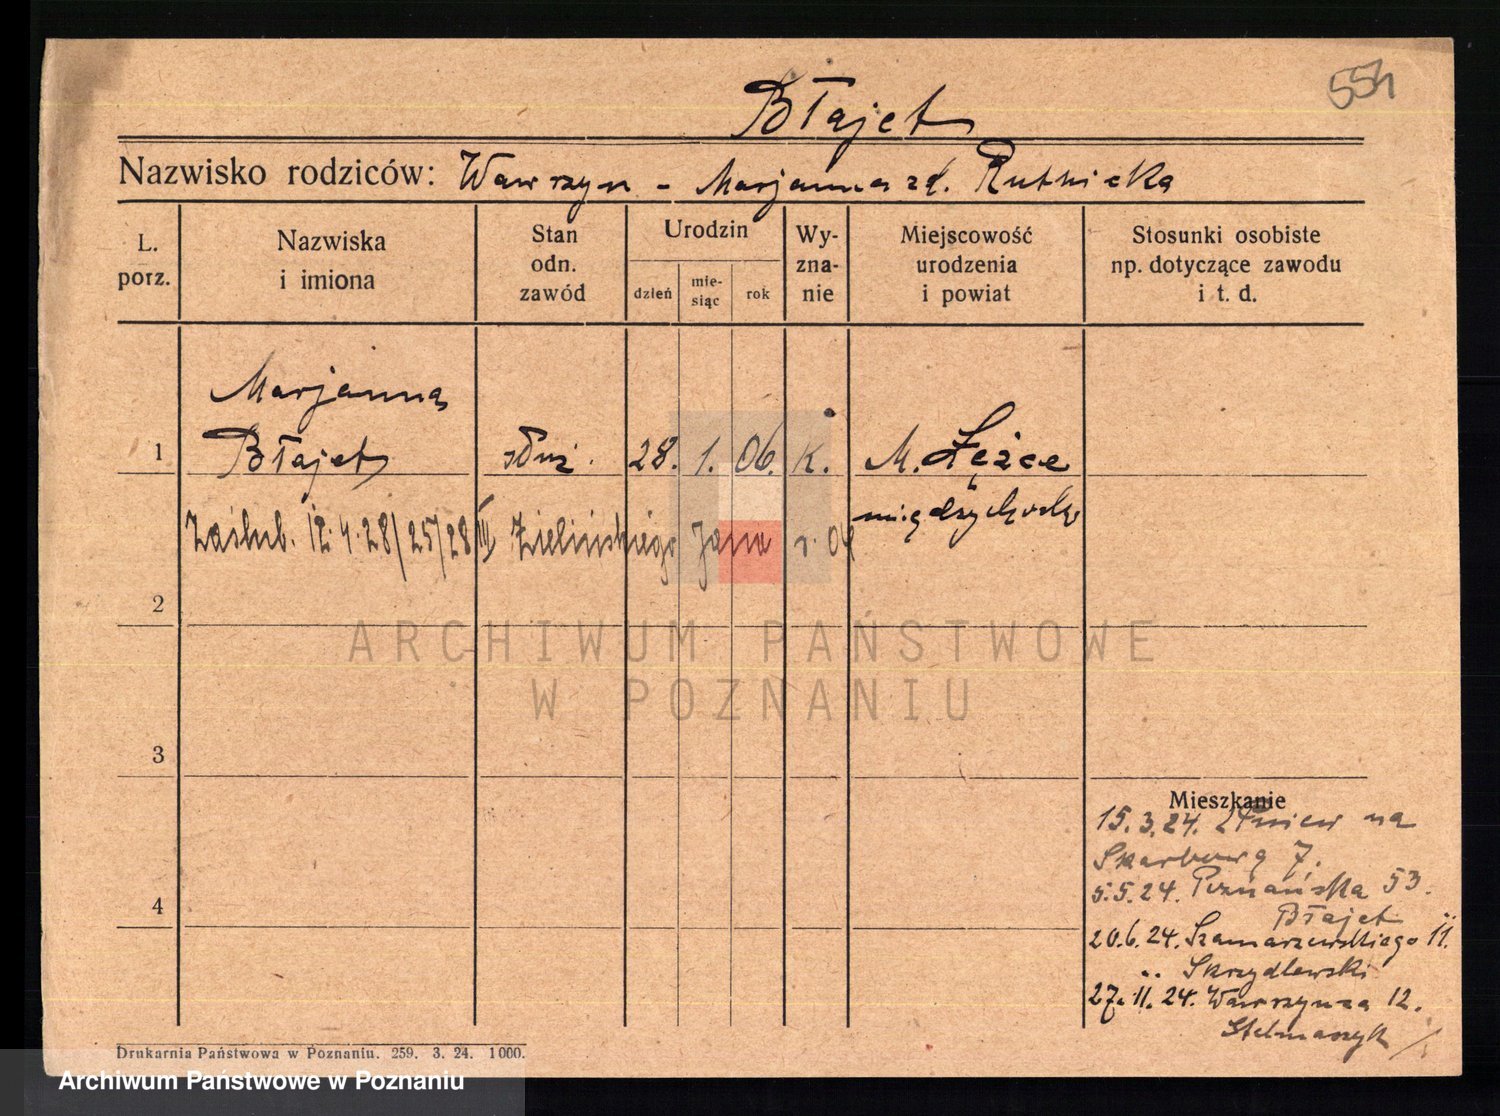 554
Błajet
Nazwisko rodziców: Wawrzyn - Marjanna zd. Rutnicka
L. porz.
Nazwiska i imiona
Stan odn. zawód
Urodzin
dzień
mie- siąc
rok
Wy- zna- nie
Miejscowość urodzenia i powiat
Stosunki osobiste np. dotyczące zawodu i t. d.
Marjanna
1 Błajet służ. 28. 1. 06. K. M. Łężce
międzychodzki
Zaślub. 12. 4. 28/25/28/III Zielińskiego Jana r. 04
2
ARCHIWUM PAŃSTWOWE
W POZNANIU
3
Mieszkanie
15.3.24. na
Skarbową 7.
4
5.5.24. Poznańska 53.
Błajet
20.6.24. Szamarzewskiego 11.
Skrzydlewski
27.11.24. Wawrzyńca 12.
Stelmaszyk
Drukarnia Państwowa w Poznaniu. 259. 3. 24. 1000.
Archiwum Państwowe w Poznaniu